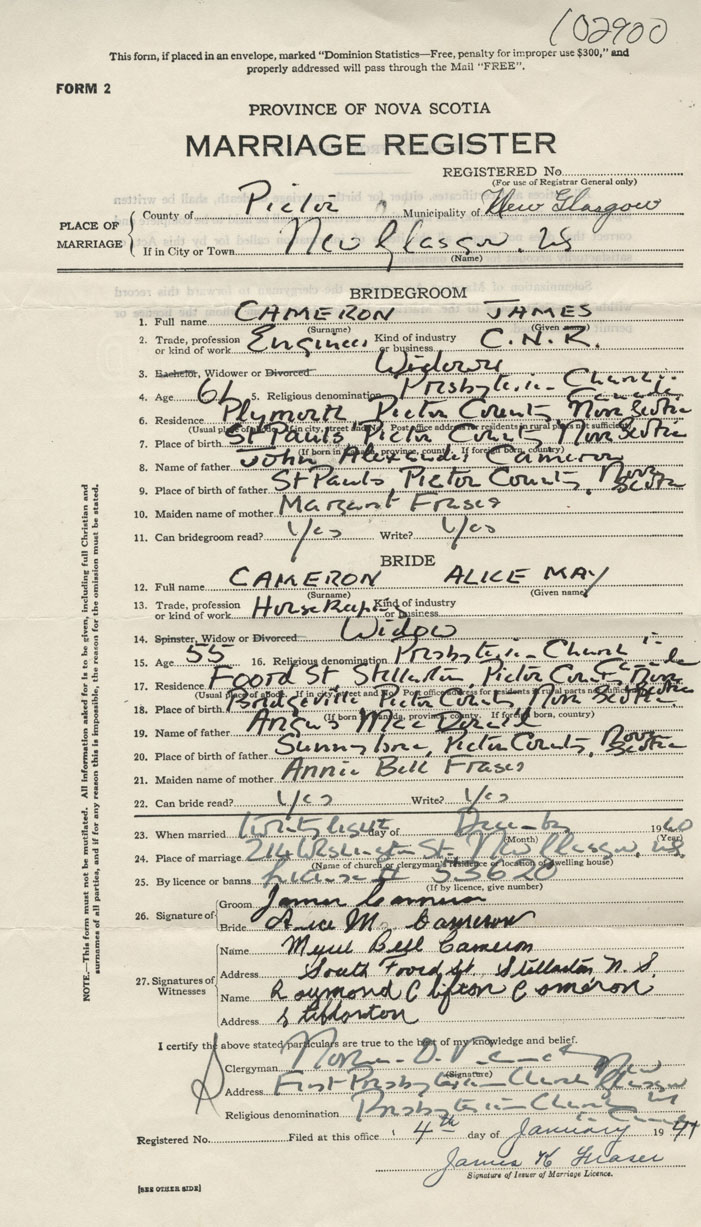 102900
This form, if placed in an envelope, marked "Dominion Statistics—Free, penalty for improper use $300," and
properly addressed will pass through the Mail "FREE".
FORM 2
PROVINCE OF NOVA SCOTIA
MARRIAGE REGISTER
REGISTERED No.
(For use of Registrar General only)
PLACE OF MARRIAGE
County of Pictou Municipality of New Glasgow
If in City or Town New Glasgow, NS
(Name)
BRIDEGROOM
1. Full name CAMERON JAMES
(Surname) (Given name)
2. Trade, profession or kind of work Engineer Kind of industry or business C.N.R.
3. Bachelor, Widower or Divorced Widower
4. Age 5. Religious denomination Presbyterian Church in Canada
6. Residence Plymouth, Pictou County, Nova Scotia
(Usual place of abode. If in city, street and No. Post office address for residents in rural parts not sufficient)
7. Place of birth St Pauls, Pictou County, Nova Scotia
(If born in Canada, province, county. If foreign born, country)
8. Name of father John Alexander Cameron
9. Place of birth of father St Pauls, Pictou County, Nova Scotia
10. Maiden name of mother Margaret Fraser
11. Can bridegroom read? Yes Write? Yes
BRIDE
12. Full name CAMERON ALICE MAY
(Surname) (Given name)
13. Trade, profession or kind of work Housekeeper Kind of industry or business
14. Spinster, Widow or Divorced Widow
15. Age 55 16. Religious denomination Presbyterian Church in Canada
17. Residence Foord St Stellarton, Pictou County, Nova Scotia
(Usual place of abode. If in city, street and No. Post office address for residents in rural parts not sufficient)
18. Place of birth Bridgeville, Pictou County, Nova Scotia
(If born in Canada, province, county. If foreign born, country)
19. Name of father Angus MacDonald
20. Place of birth of father Sunnybrae, Pictou County, Nova Scotia
21. Maiden name of mother Annie Bell Fraser
22. Can bride read? Yes Write? Yes
23. When married Twenty eight day of December 1960
(Month) (Year)
24. Place of marriage 214 Washington St. New Glasgow, NS.
(Name of church or clergyman's residence or location of dwelling house)
25. By licence or banns License # 53620
(If by licence, give number)
26. Signature of
Groom James Cameron
Bride Alice M. Cameron
27. Signatures of Witnesses
Name Bell Cameron
Address South Foord St. Stellarton N.S.
Name Raymond Clifton Cameron
Address Stellarton
I certify the above stated particulars are true to the best of my knowledge and belief.
Clergyman
(Signature)
Address First Presbyterian Church New Glasgow
Religious denomination Presbyterian Church in Canada
Registered No. Filed at this office 4th day of January 19
James Fraser
Signature of Issuer of Marriage Licence.
[SEE OTHER SIDE]
NOTE.—This form must not be mutilated. All information asked for is to be given, including full Christian and
surnames of all parties, and if for any reason this is impossible, the reason for the omission must be stated.